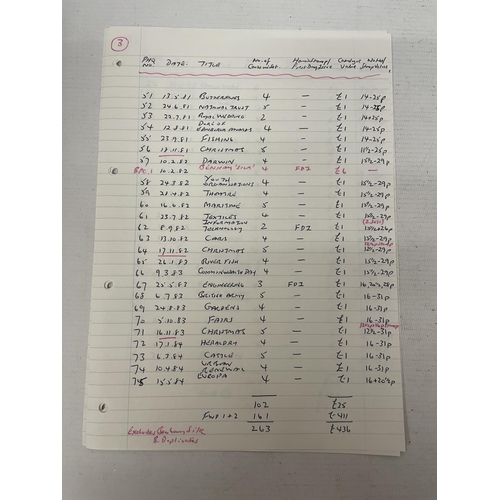 3
PHQ NO. DATE. TITLE No. of Cards in Set. Handstamp/ First Day Issue Catalogue Value Notes/ Stamp Values
51 13.5.81 BUTTERFLIES 4 — £1 14-25p
52 24.6.81 NATIONAL TRUST 5 — £1 14-25p
53 22.7.81 ROYAL WEDDING 2 — £1 14+25p
54 12.8.81 DUKE OF EDINBURGH AWARDS 4 — £1 14-25p
55 23.9.81 FISHING 4 — £1 14-25p
56 18.11.81 CHRISTMAS 5 — £1 11½-25p
57 10.2.82 DARWIN 4 — £1 15½-29p
10.2.82 BENHAM 'SILK' 4 FDI £6 —
58 24.3.82 YOUTH ORGANISATIONS 4 — £1 15½-29p
59 28.4.82 THEATRE 4 — £1 15½-29p
60 16.6.82 MARITIME 5 — £1 15½-29p
61 23.7.82 TEXTILES 4 — £1 15½-29p
62 8.9.82 INFORMATION TECHNOLOGY 2 FDI £1 15½+26p
63 13.10.82 CARS 4 — £1 15½-29p
64 17.11.82 CHRISTMAS 5 — £1 12½-29p
65 26.1.83 RIVER FISH 4 — £1 15½-29p
66 9.3.83 COMMONWEALTH DAY 4 — £1 15½-29p
67 25.5.83 ENGINEERING 3 FDI £1 16, 20½, 28p
68 6.7.83 BRITISH ARMY 5 — £1 16-31p
69 24.8.83 GARDENS 4 — £1 16-31p
70 5.10.83 FAIRS 4 — £1 16-31p
71 16.11.83 CHRISTMAS 5 — £1 12½-31p
72 17.1.84 HERALDRY 4 — £1 16-31p
73 6.3.84 CATTLE 5 — £1 16-31p
74 10.4.84 URBAN RENEWAL 4 — £1 16-31p
75 15.5.84 EUROPA 4 — £1 16+20½p
102 £25
FWD 1+2 161 £411
263 £436
Excludes Benham Silk
& Duplicates